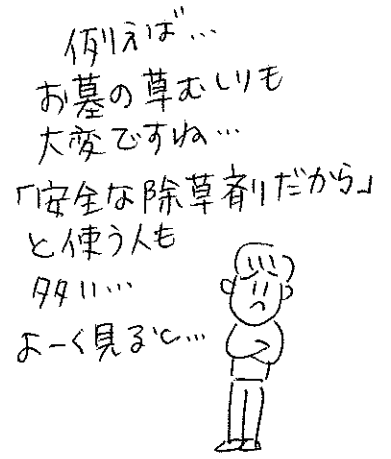 例えば…
お墓の草むしりも
大変ですね…
「安全な除草剤だから」
と使う人も
多い…
よーく見ると…